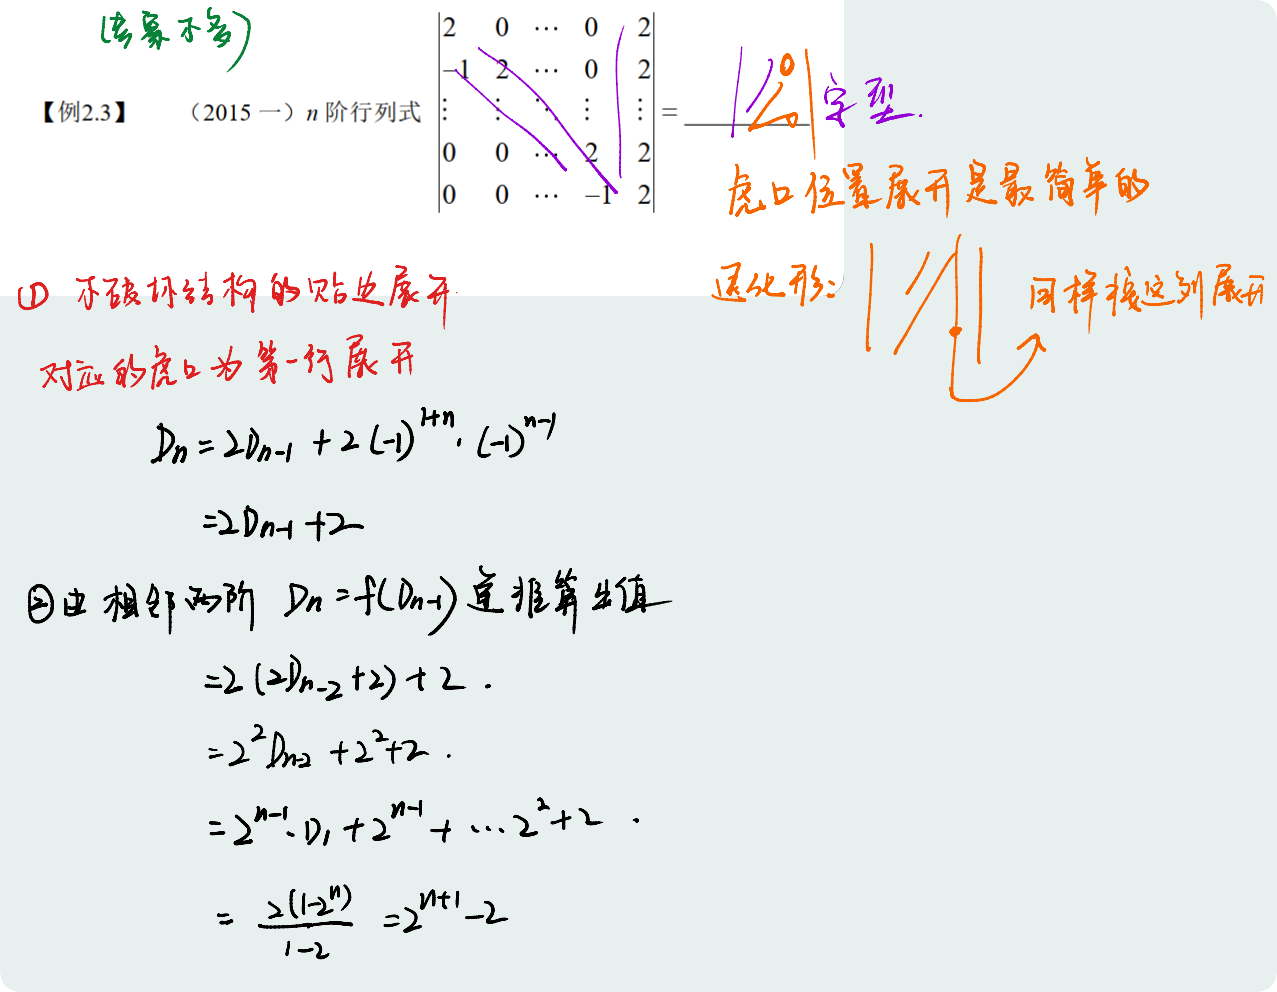 (考察不多)
【例2.3】 （2015 一）n 阶行列式 = ______
2 0 ⋯ 0 2
−1 2 ⋯ 0 2
⋮ ⋮ ⋱ ⋮ ⋮
0 0 ⋯ 2 2
0 0 ⋯ −1 2
字型.
虎口位置展开是最简单的
退化形:
同样按这列展开
① 不破坏结构的贴边展开
对应的虎口为第一行展开
Dn = 2Dn-1 + 2(-1)^{1+n}·(-1)^{n-1}
=2Dn-1+2
②由相邻两阶 Dn = f(Dn-1) 递推算出值
=2(2Dn-2+2)+2.
=2^2Dn-2+2^2+2.
=2^{n-1}·D1+2^{n-1}+⋯2^2+2.
= 2(1-2^n)/(1-2) =2^{n+1}-2